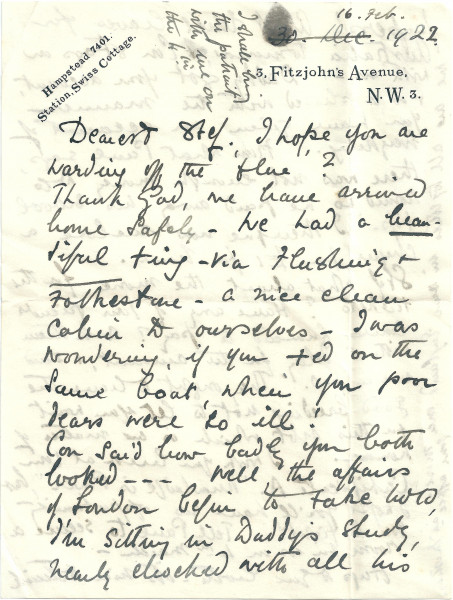 16. Feb.
30 Dec. 1922
I shall bring
the portrait
with me on
the 4th
Hampstead 7401.
Station, Swiss Cottage.
3, Fitzjohn's Avenue,
N.W. 3.
Dearest Stef, I hope you are
warding off the flue?
Thank God, we have arrived
home safely - We had a beau-
tiful Xing - via Flushing &
Folkestone - a nice clean
cabin to ourselves - I was
wondering, if you Xed on the
same boat, when you poor
dears were so ill!
Con said how badly you both
looked --- Well the affairs
of London begin to take hold,
I'm sitting in Daddy's study,
nearly chocked with all his